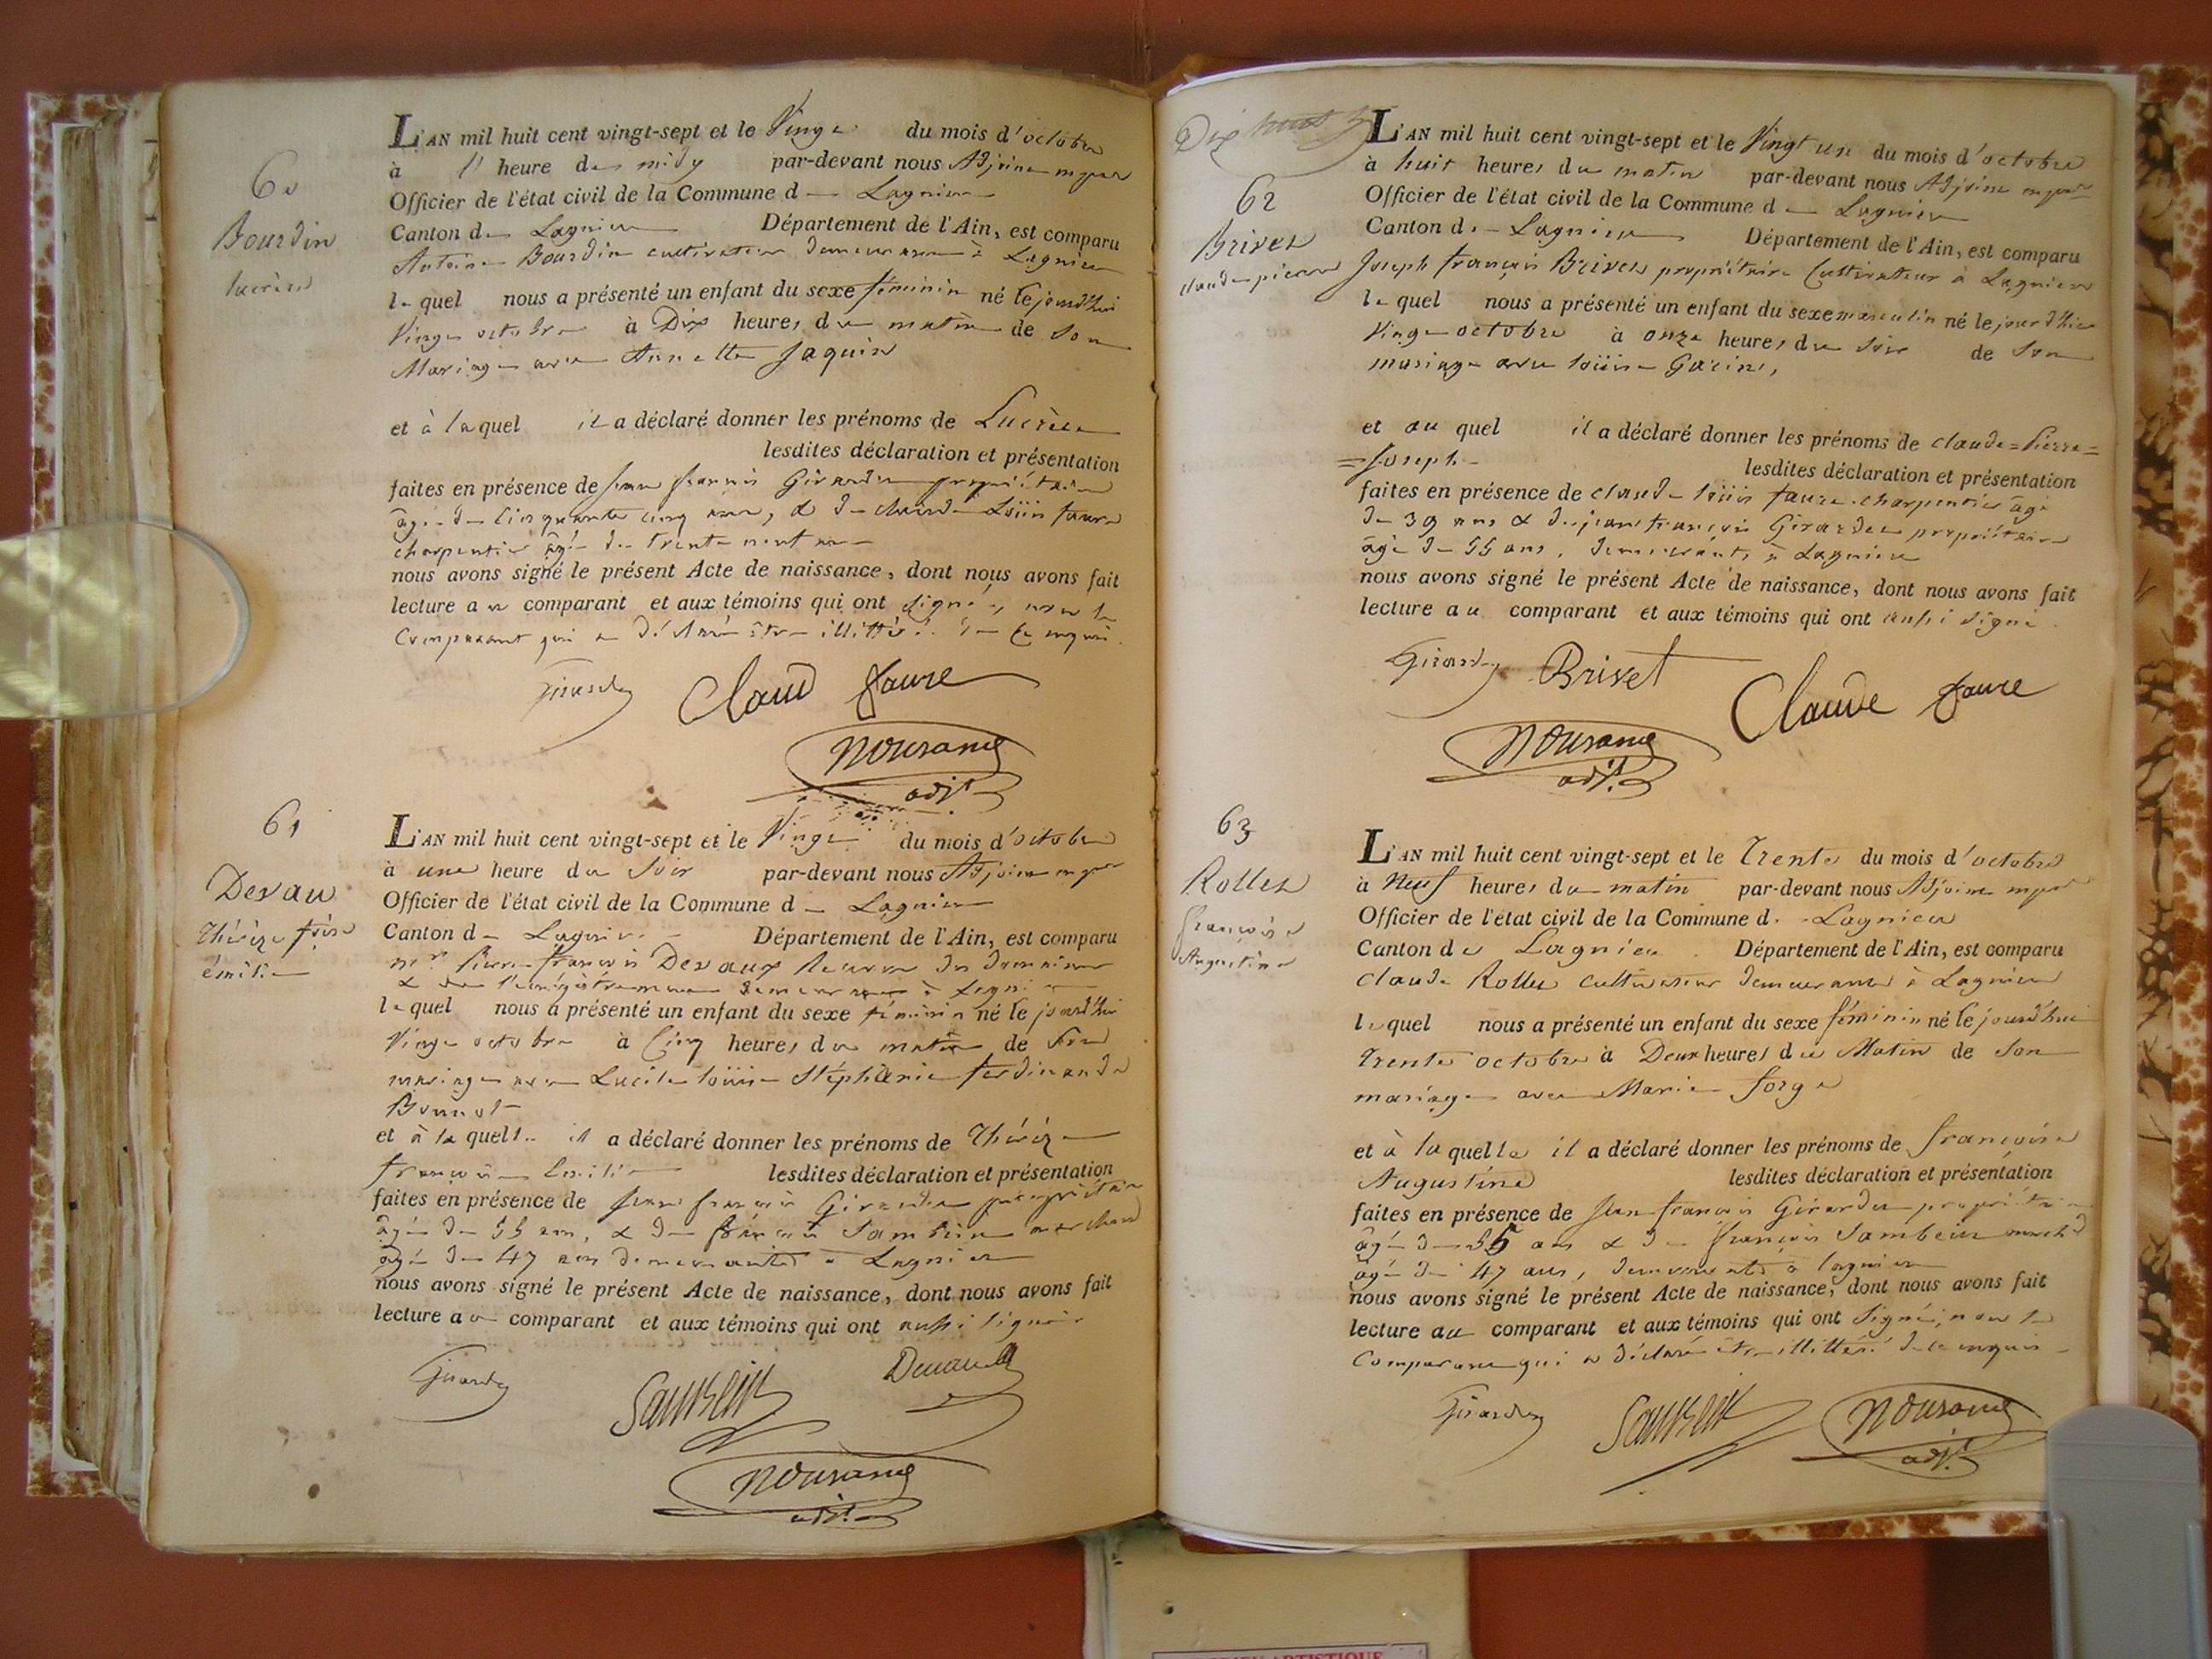 60
Bourdin
lucrèce
L'AN mil huit cent vingt-sept et le Vingt du mois d'octobre
à l' heure de midy par-devant nous Adjoint
Officier de l'état civil de la Commune d Lagnieu
Canton de Lagnieu Département de l'Ain, est comparu
Antoine Bourdin cultivateur demeurant à Lagnieu
le quel nous a présenté un enfant du sexe féminin né le jourd'hui
Vingt octobre à Dix heures du matin de son
Mariage avec Annette Jaquin
et à la quel il a déclaré donner les prénoms de Lucrèce
lesdites déclaration et présentation
faites en présence de Jean françois Girardet propriétaire
âgé de Cinquante cinq ans, & de claude Loüis faure
charpentier âgé de trente neuf ans
nous avons signé le présent Acte de naissance, dont nous avons fait
lecture au comparant et aux témoins qui ont signé, non le
Comparant qui a déclaré être illitéré de ce enquis.
Girardet Claud faure
adjt
61
Devau
Thérèze frse
émilie
L'AN mil huit cent vingt-sept et le Vingt du mois d'octobre
à une heure du soir par-devant nous Adjoint
Officier de l'état civil de la Commune d Lagnieu
Canton d Lagnieu Département de l'Ain, est comparu
mr. Pierre françois Devaux Receveur des domaines
& de l'enregistrement demeurant à Lagnieu
le quel nous a présenté un enfant du sexe féminin né le jourd'hui
Vingt octobre à Cinq heures du matin de son
mariage avec Lucile loüise Stéphanie ferdinande
Bonnot
et à la quelle il a déclaré donner les prénoms de Thérèze
françoise Emilie lesdites déclaration et présentation
faites en présence de Jean françois Girardet propriétaire
âgé de 55 ans, & de françois Sambein marchand
âgé de 47 ans demeurants à Lagnieu
nous avons signé le présent Acte de naissance, dont nous avons fait
lecture au comparant et aux témoins qui ont aussi signé.
Girardet Sambein Devaux
adjt
Dix huit
62
Brivet
claude pierre
L'AN mil huit cent vingt-sept et le Vingt un du mois d'octobre
à huit heures du matin par-devant nous Adjoint
Officier de l'état civil de la Commune d Lagnieu
Canton d. Lagnieu Département de l'Ain, est comparu
Joseph françois Brivet propriétaire Cultivateur à Lagnieu
le quel nous a présenté un enfant du sexe masculin né le jourd'hier
Vingt octobre à onze heures du soir de son
mariage avec loüise Garin,
et au quel il a déclaré donner les prénoms de claude=Pierre=
=Joseph lesdites déclaration et présentation
faites en présence de claude loüis faure charpentier âgé
de 39 ans & de jean françois Girardet propriétaire
âgé de 55 ans, demeurants à Lagnieu
nous avons signé le présent Acte de naissance, dont nous avons fait
lecture au comparant et aux témoins qui ont aussi signé.
Girardet Brivet Claude faure
adjt.
63
Rollet
françoise
Augustine
L'AN mil huit cent vingt-sept et le Trente du mois d'octobre
à Neuf heures du matin par-devant nous Adjoint
Officier de l'état civil de la Commune d. Lagnieu
Canton de Lagnieu Département de l'Ain, est comparu
Claude Rollet cultivateur demeurant à Lagnieu
le quel nous a présenté un enfant du sexe féminin né le jourd'hui
trente octobre à Deux heures du Matin de son
mariage avec Marie forge
et à la quelle il a déclaré donner les prénoms de françoise
Augustine lesdites déclaration et présentation
faites en présence de Jean françois Girardet propriétaire
âgé de 55 ans & de françois Sambein marchd
âgé de 47 ans, demeurants à lagnieu
nous avons signé le présent Acte de naissance, dont nous avons fait
lecture au comparant et aux témoins qui ont signé, non le
Comparant qui a déclaré être illitéré de ce enquis
Girardet Sambein
adjt.
ARTISTIQUE